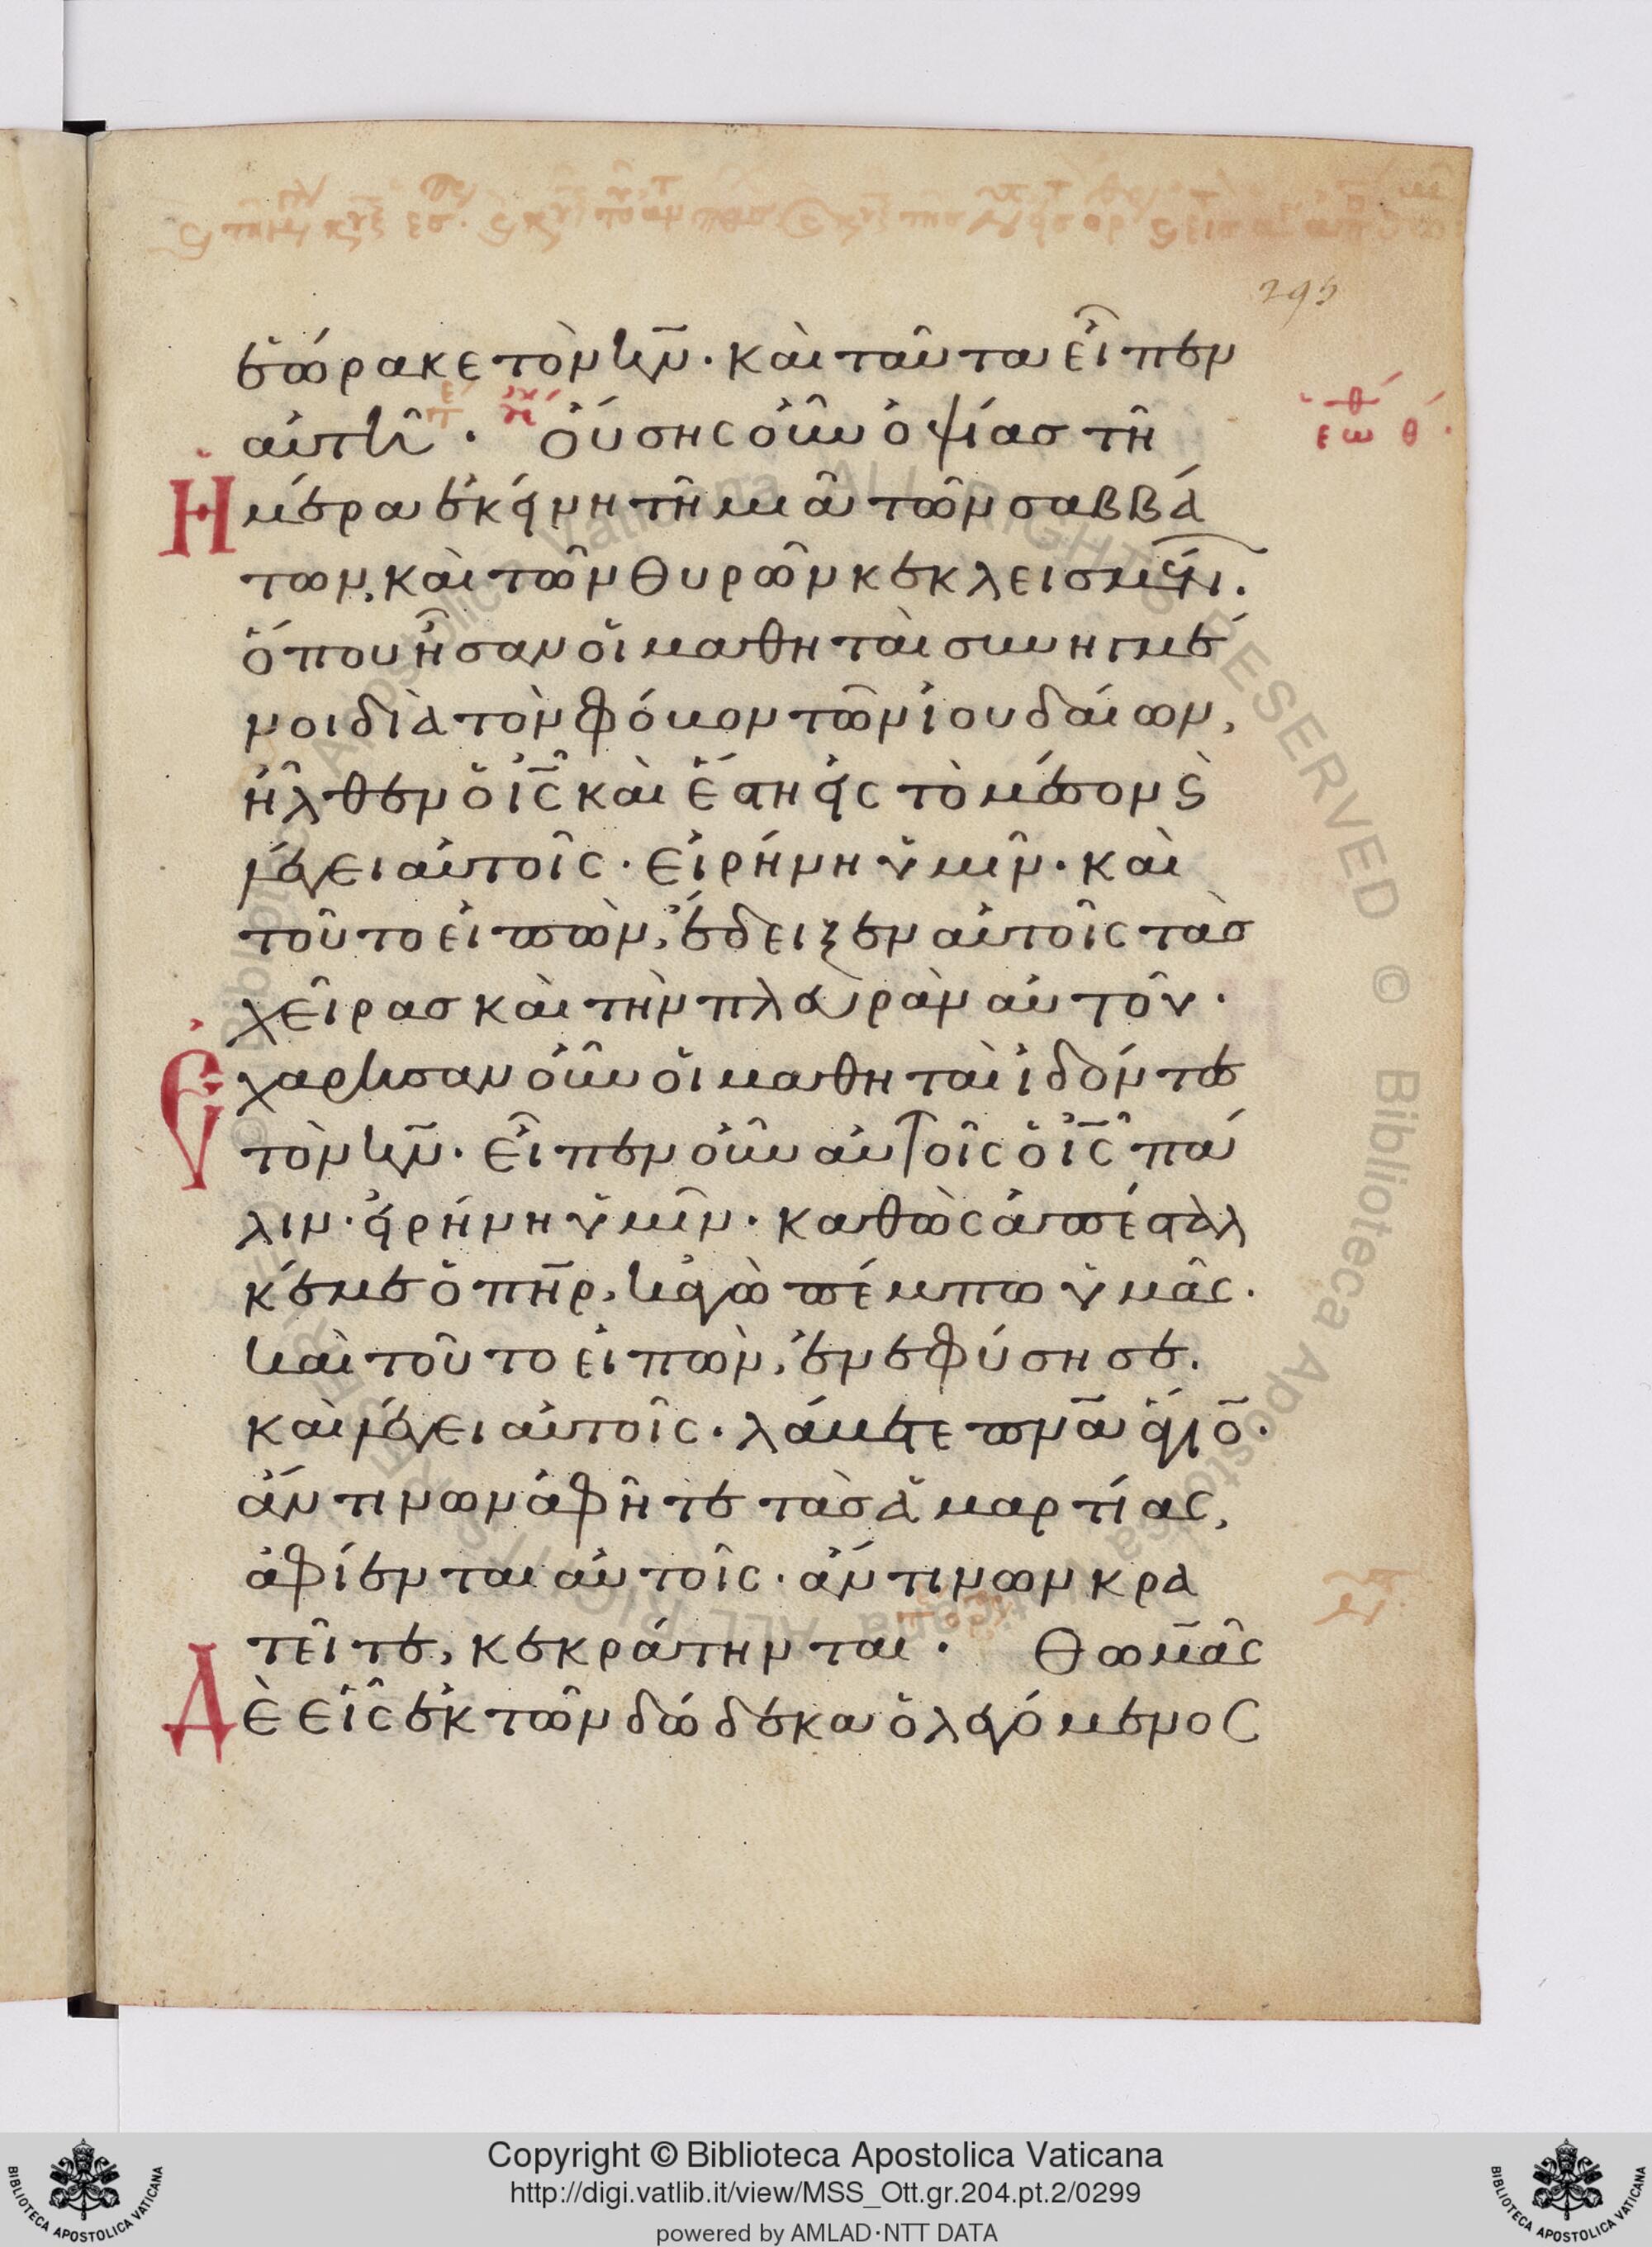 295
ἑώρακε τὸν κν̄. καὶ ταῦτα εἶπεν
αὐτῆ. οὔσης οὖν ὀψίας τῆ
Ἡμέρα ἐκείνη τῆ μιᾶ τῶν σαββά
των, καὶ τῶν θυρῶν κεκλεισμένων.
ὅπου ἦσαν οἱ μαθηταὶ συνηγμέ
νοι διὰ τὸν φόβον τῶν ἰουδαίων,
ἦλθεν ὁ ις̄ καὶ ἔστη εἰς τὸ μέσον ϛ
λέγει αὐτοῖς. εἰρήνη ὑμῖν. καὶ
τοῦτο εἰπὼν, ἔδειξεν αὐτοῖς τὰς
χεῖρας καὶ τὴν πλευρὰν αὐτοῦ.
Ἐχάρησαν οὖν οἱ μαθηταὶ ἰδόντες
τὸν κν̄. εἶπεν οὖν αὐτοῖς ὁ ις̄ πά
λιν. εἰρήνη ὑμῖν. καθὼς ἀπέσταλ
κέ με ὁ πη̄ρ, κἀγὼ πέμπω ὑμᾶς.
καὶ τοῦτο εἰπὼν, ἐνεφύσησε.
καὶ λέγει αὐτοῖς. λάβετε πνᾱ ἅγιο̄.
ἄν τινων ἀφῆτε τὰς ἁμαρτίας,
ἀφίενται αὐτοῖς. ἄν τινων κρα
τεῖτε, κεκράτηνται. Θωμᾶς
Δὲ εἷς ἐκ τῶν δώδεκα ὁ λεγόμενος
Copyright © Biblioteca Apostolica Vaticana
http://digi.vatlib.it/view/MSS_Ott.gr.204.pt.2/0299
powered by AMLAD·NTT DATA
BIBLIOTECA APOSTOLICA VATICANA
BIBLIOTECA APOSTOLICA VATICANA